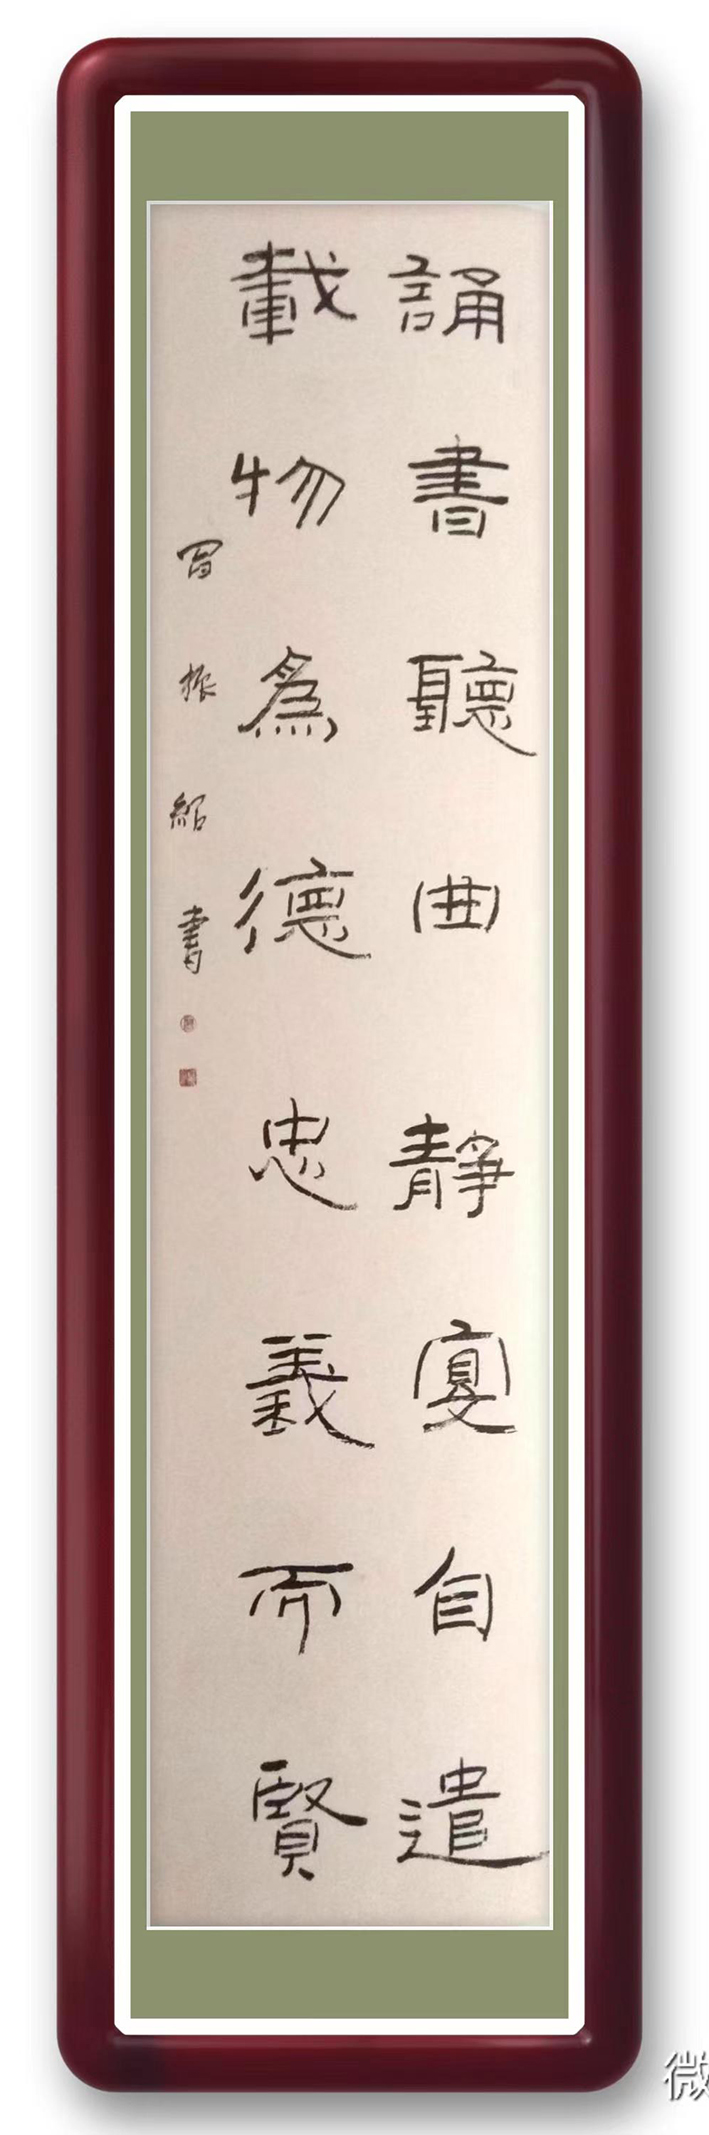 誦書聽曲靜宴自遣
載物為德忠義而賢
冒振紹書
微